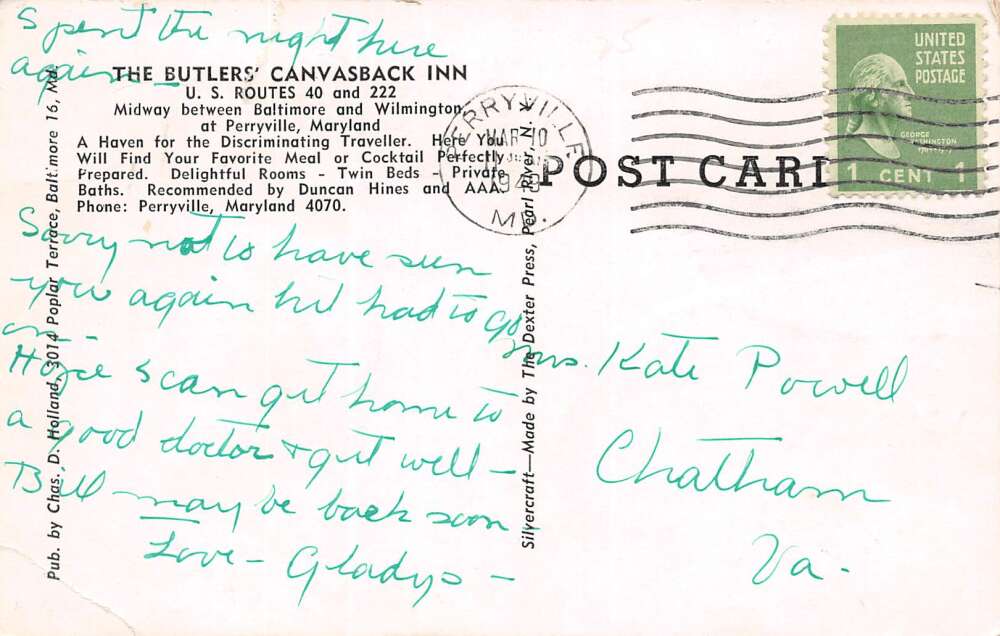 Spent the night here
again -
THE BUTLERS' CANVASBACK INN
U. S. ROUTES 40 and 222
Midway between Baltimore and Wilmington
at Perryville, Maryland
A Haven for the Discriminating Traveller. Here You
Will Find Your Favorite Meal or Cocktail Perfectly
Prepared. Delightful Rooms - Twin Beds - Private
Baths. Recommended by Duncan Hines and AAA.
Phone: Perryville, Maryland 4070.
Sorry not to have seen
you again but had to go
on -
Hope I can get home to
a good doctor & get well -
Bill may be back soon -
Love - Gladys -
Pub. by Chas. D. Holland, 3014 Poplar Terrace, Baltimore 16, Md.
Silvercraft—Made by The Dexter Press, Pearl River, N. Y.
PERRYVILLE
MAR 10
MD.
POST CAR
UNITED
STATES
POSTAGE
GEORGE
WASHINGTON
1 CENT 1
Mrs. Kate Powell
Chatham
Va.